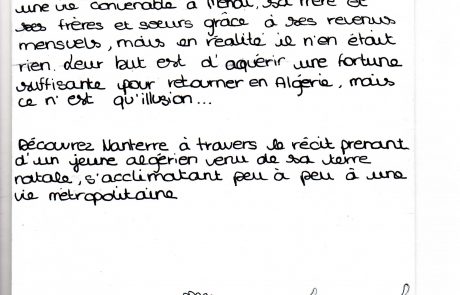 une vie convenable à
ses frères et soeurs grâce à ses revenus
mensuels, mais en réalité il n'en était
rien. Leur but est d'aquérir une fortune
suffisante pour retourner en Algérie, mais
ce n'est qu'illusion...
Découvrez Nanterre à travers le récit prenant
d'un jeune algérien venu de sa terre
natale, s'acclimatant peu à peu à une
vie métropolitaine